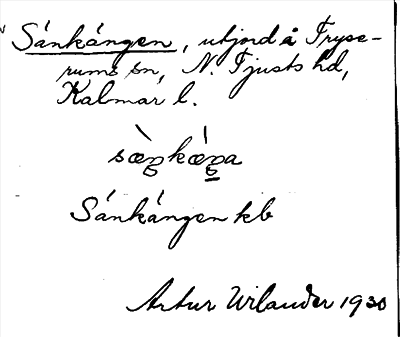 Sánkángen, utjord å Tryse-
rums sn, N. Tjusts hd,
Kalmar l.
sæ̀ŋkǽŋa
Sánkángen kb
Artur Wilander 1930